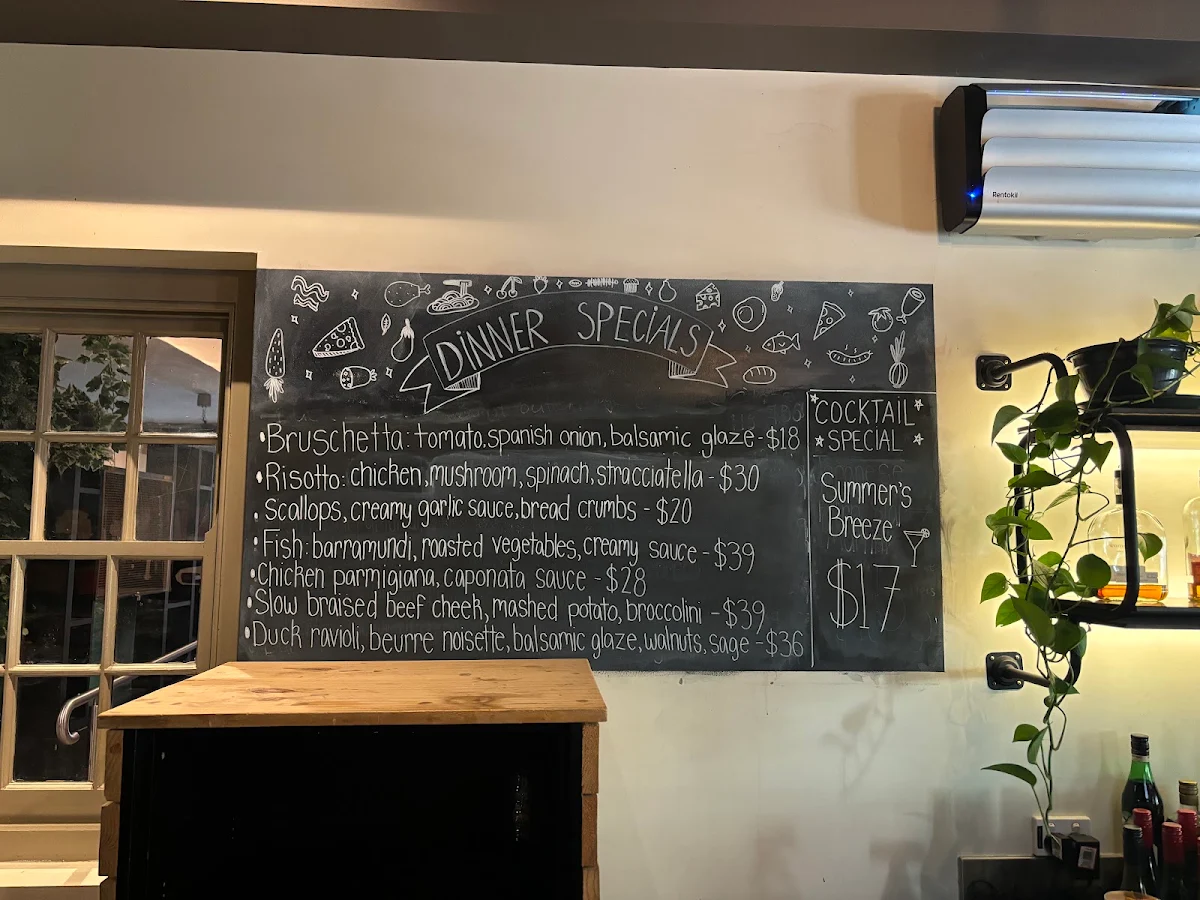 Rentokil
DINNER SPECIALS
•Bruschetta: tomato, spanish onion, balsamic glaze - $18
•Risotto: chicken, mushroom, spinach, stracciatella - $30
•Scallops, creamy garlic sauce, bread crumbs - $20
•Fish: barramundi, roasted vegetables, creamy sauce - $39
•Chicken parmigiana, caponata sauce - $28
•Slow braised beef cheek, mashed potato, broccolini - $39
•Duck ravioli, beurre noisette, balsamic glaze, walnuts, sage - $36
COCKTAIL
SPECIAL
Summer's
Breeze
$17